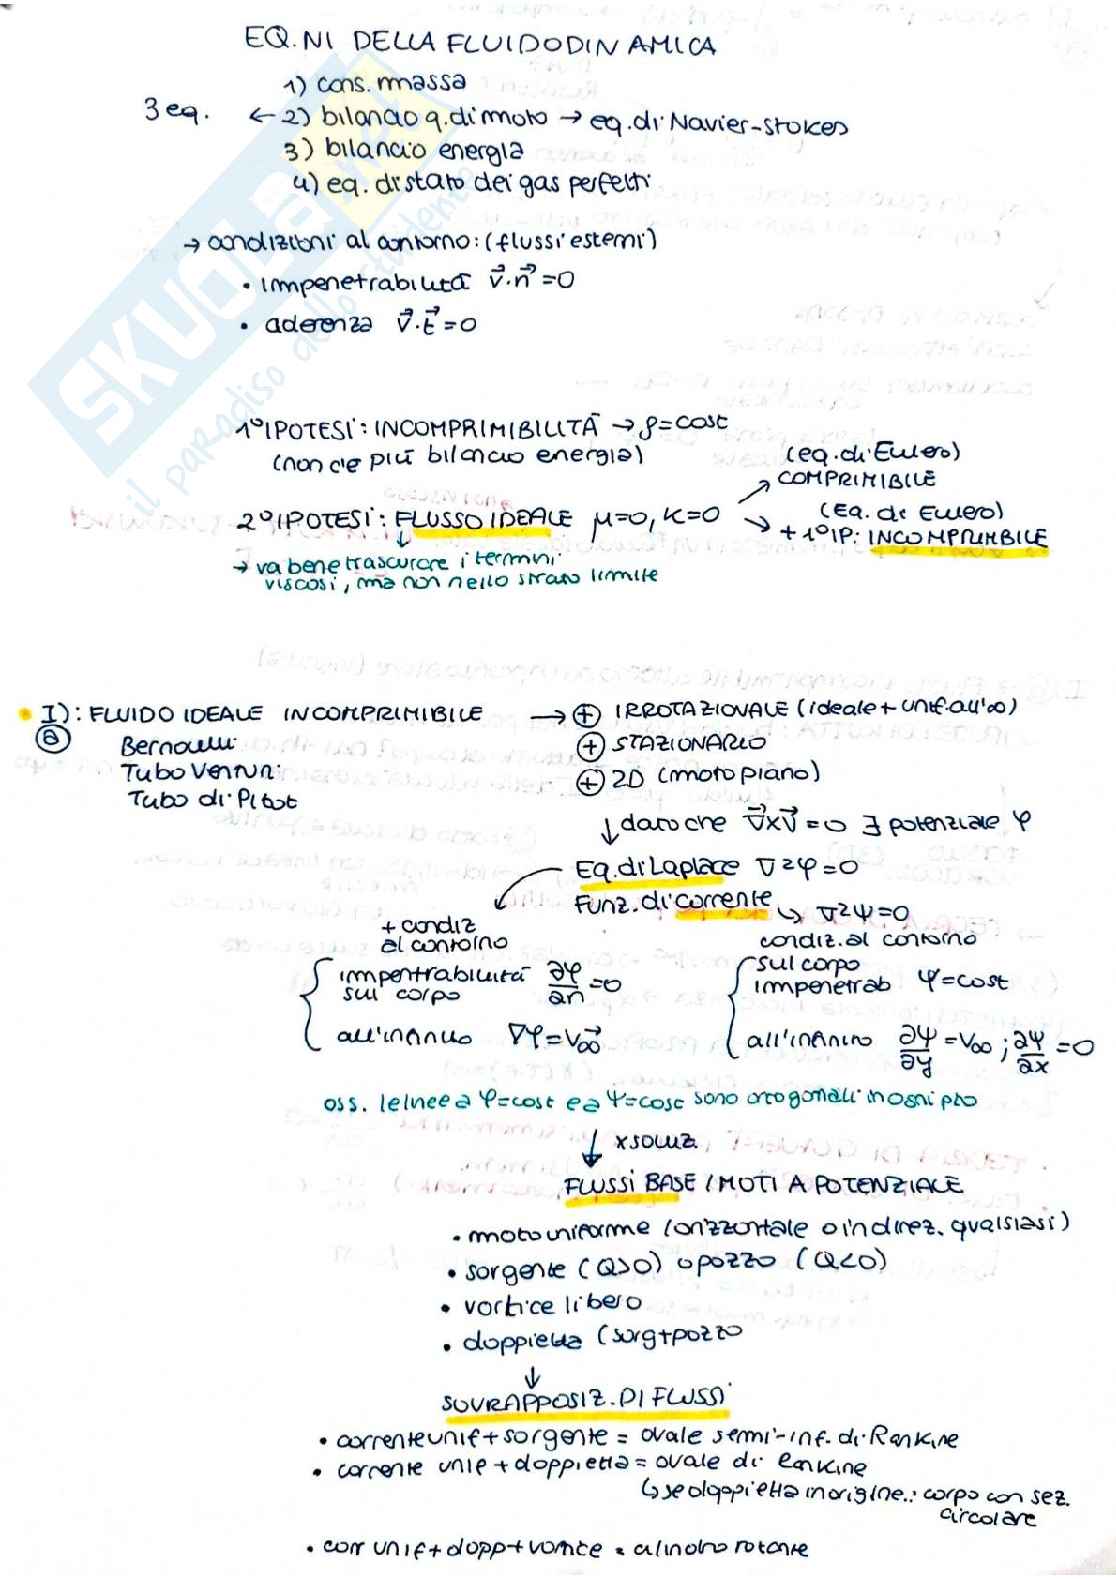 EQ.NI DELLA FLUIDODINAMICA
1) cons. massa
3 eq. ← 2) bilancio q. di moto → eq. di Navier-Stokes
3) bilancio energia
4) eq. di stato dei gas perfetti
→ condizioni al contorno: (flussi esterni)
• impenetrabilità v⃗·n⃗=0
• aderenza v⃗·t⃗=0
SKUOLA.net
il paradiso dello studente
1° IPOTESI: INCOMPRIMIBILITÀ → ρ=cost
(non c'è più bilancio energia)
(eq. di Eulero)
COMPRIMIBILE
2° IPOTESI: FLUSSO IDEALE μ=0, K=0
(Eq. di Eulero)
+ 1° IP: INCOMPRIMIBILE
→ va bene trascurare i termini
viscosi, ma non nello strato limite
I): FLUIDO IDEALE INCOMPRIMIBILE → ⊕ IRROTAZIONALE (ideale + unif. all'∞)
ⓐ Bernoulli ⊕ STAZIONARIO
Tubo Venturi ⊕ 2D (moto piano)
Tubo di Pitot
↓ dato che ∇⃗×v⃗=0 ∃ potenziale φ
Eq. di Laplace ∇²φ=0
Funz. di corrente ↳ ∇²ψ=0
+ condiz
al contorno
condiz. al contorno
impentrabilità
sul corpo ∂φ/∂n=0
sul corpo
impenetrab ψ=cost
all'infinito ∇φ=v∞⃗
all'infinito ∂ψ/∂y=v∞; ∂ψ/∂x=0
oss. le linee a φ=cost e a ψ=cost sono ortogonali in ogni pto
↓ x soluz.
FLUSSI BASE / MOTI A POTENZIALE
• moto uniforme (orizzontale o in direz. qualsiasi)
• sorgente (Q>0) o pozzo (Q<0)
• vortice libero
• doppietta (sorg+pozzo
↓
SOVRAPPOSIZ. DI FLUSSI
• corrente unif + sorgente = ovale semi-inf. di Rankine
• corrente unif + doppietta = ovale di Rankine
↳ se doppietta in origine: corpo con sez.
circolare
• corr unif + dopp + vortice = cilindro rotante